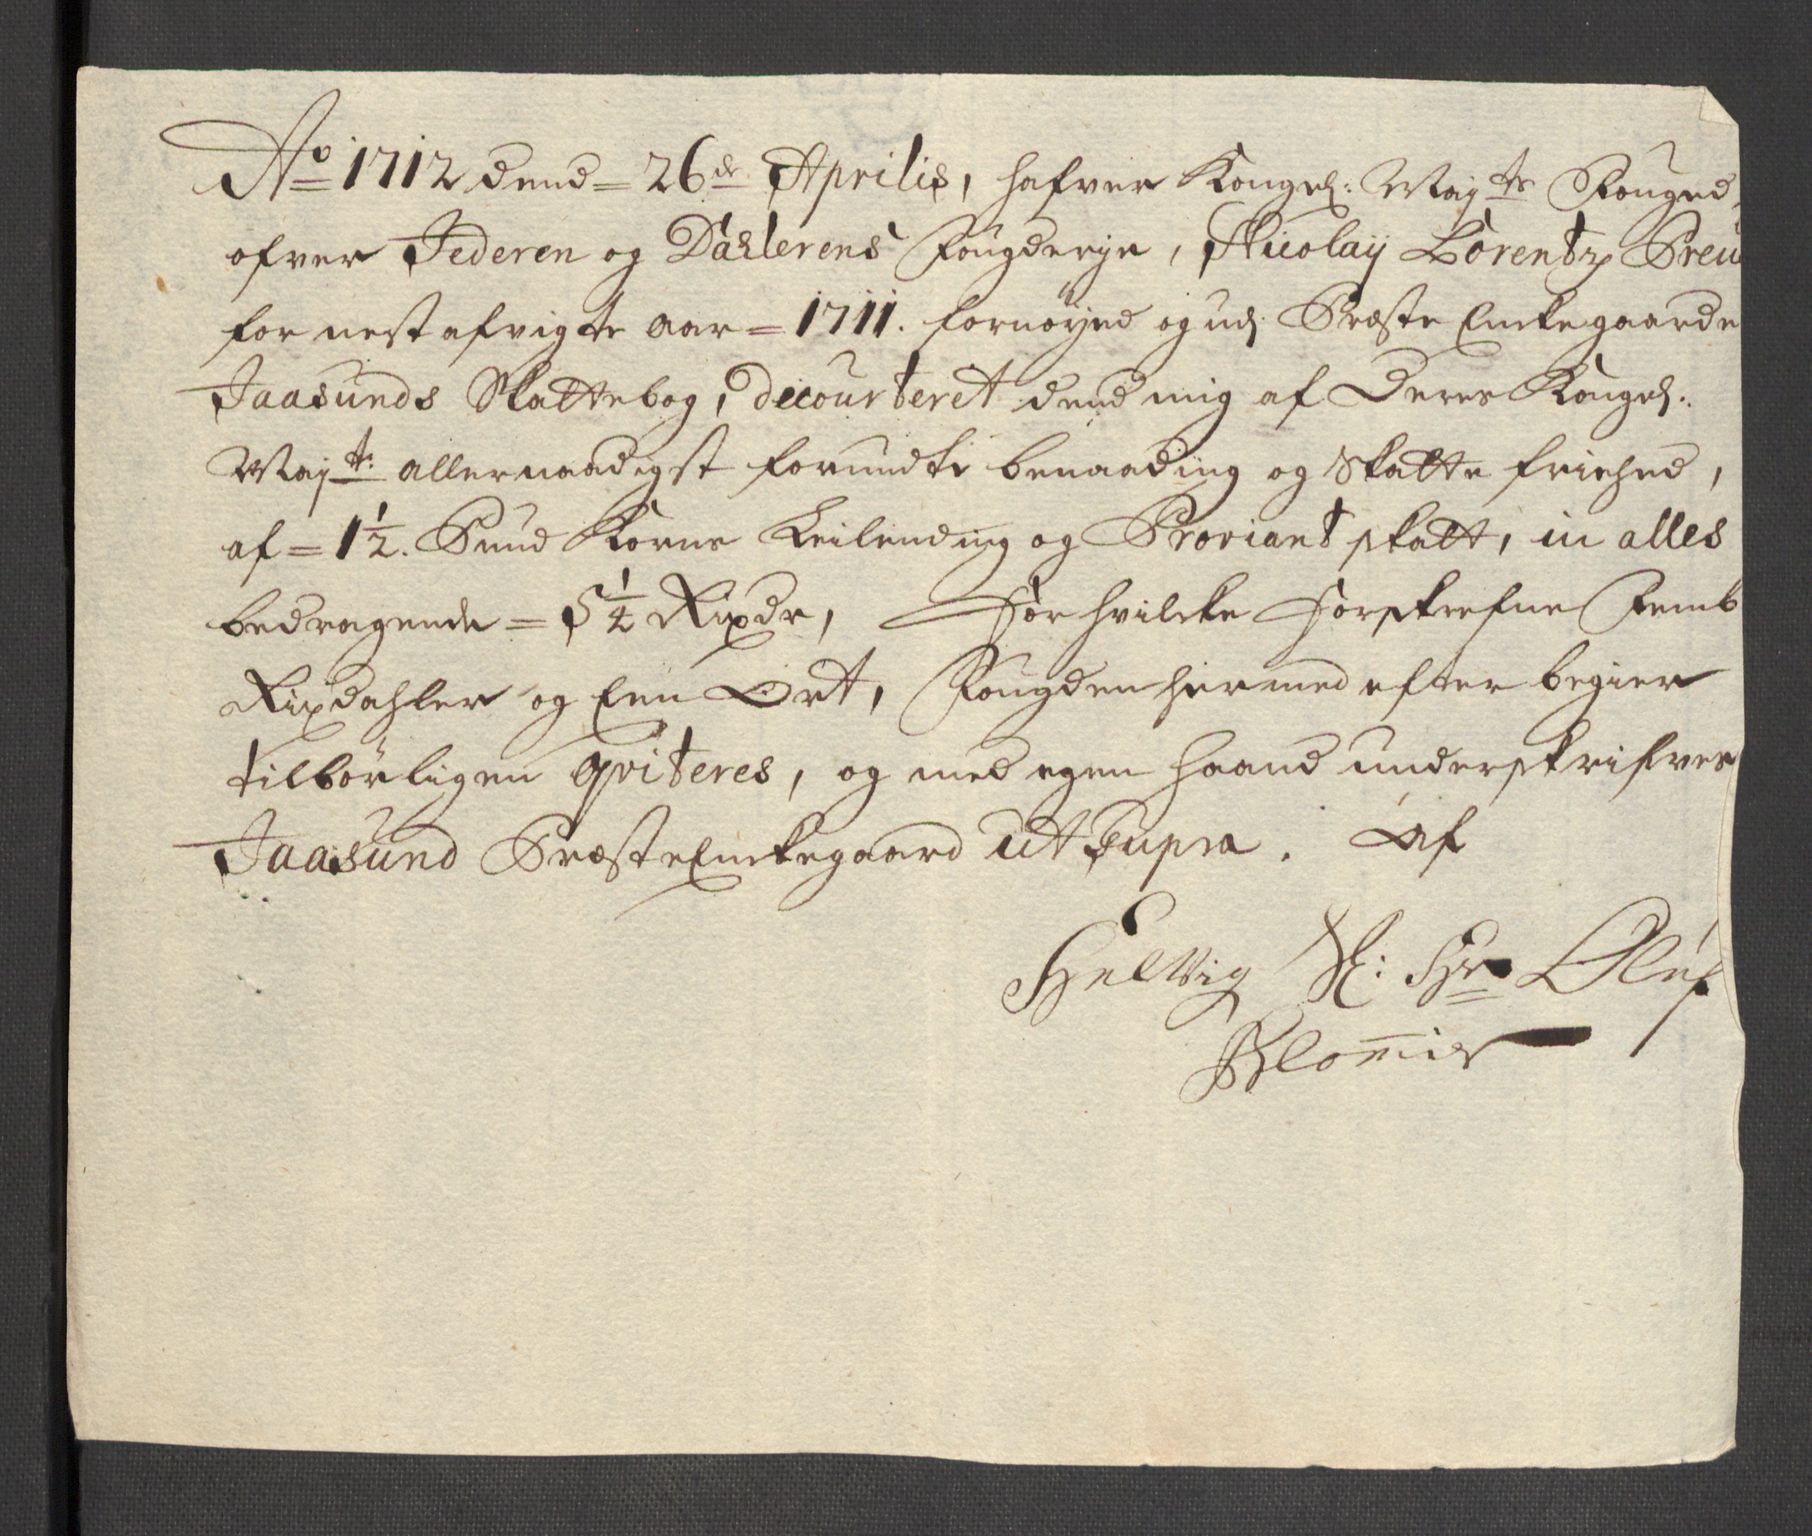 Ao 1712 dend = 26de Aprilis, hafver Kongel: Mayts Fouged
ofver Jederen og Dahlerens Fougderye, Nicolaij Lorentz Preu
for nest afvigte Aar = 1711. fornøyed og udj Præste Enckegaarde
Jaasunds Skattebog, decourteret dend mig af Deres Kongel:
Mayt: allernaadigst forundte benaading og Skatte friehed,
af = 1½. Pund Korns Leilending og Proviant skatt, in alles
bedragende = 5¼ Rixdr, For hvilcke forskrefne Femb
Rixdahler og Een Ort, Fougden hermed efter begier
tilbørligen qviteres, og med egen haand underskrifves
Jaasund Præste Enckegaard ut Supra. Af
Helvig Sl: Hr Oluf